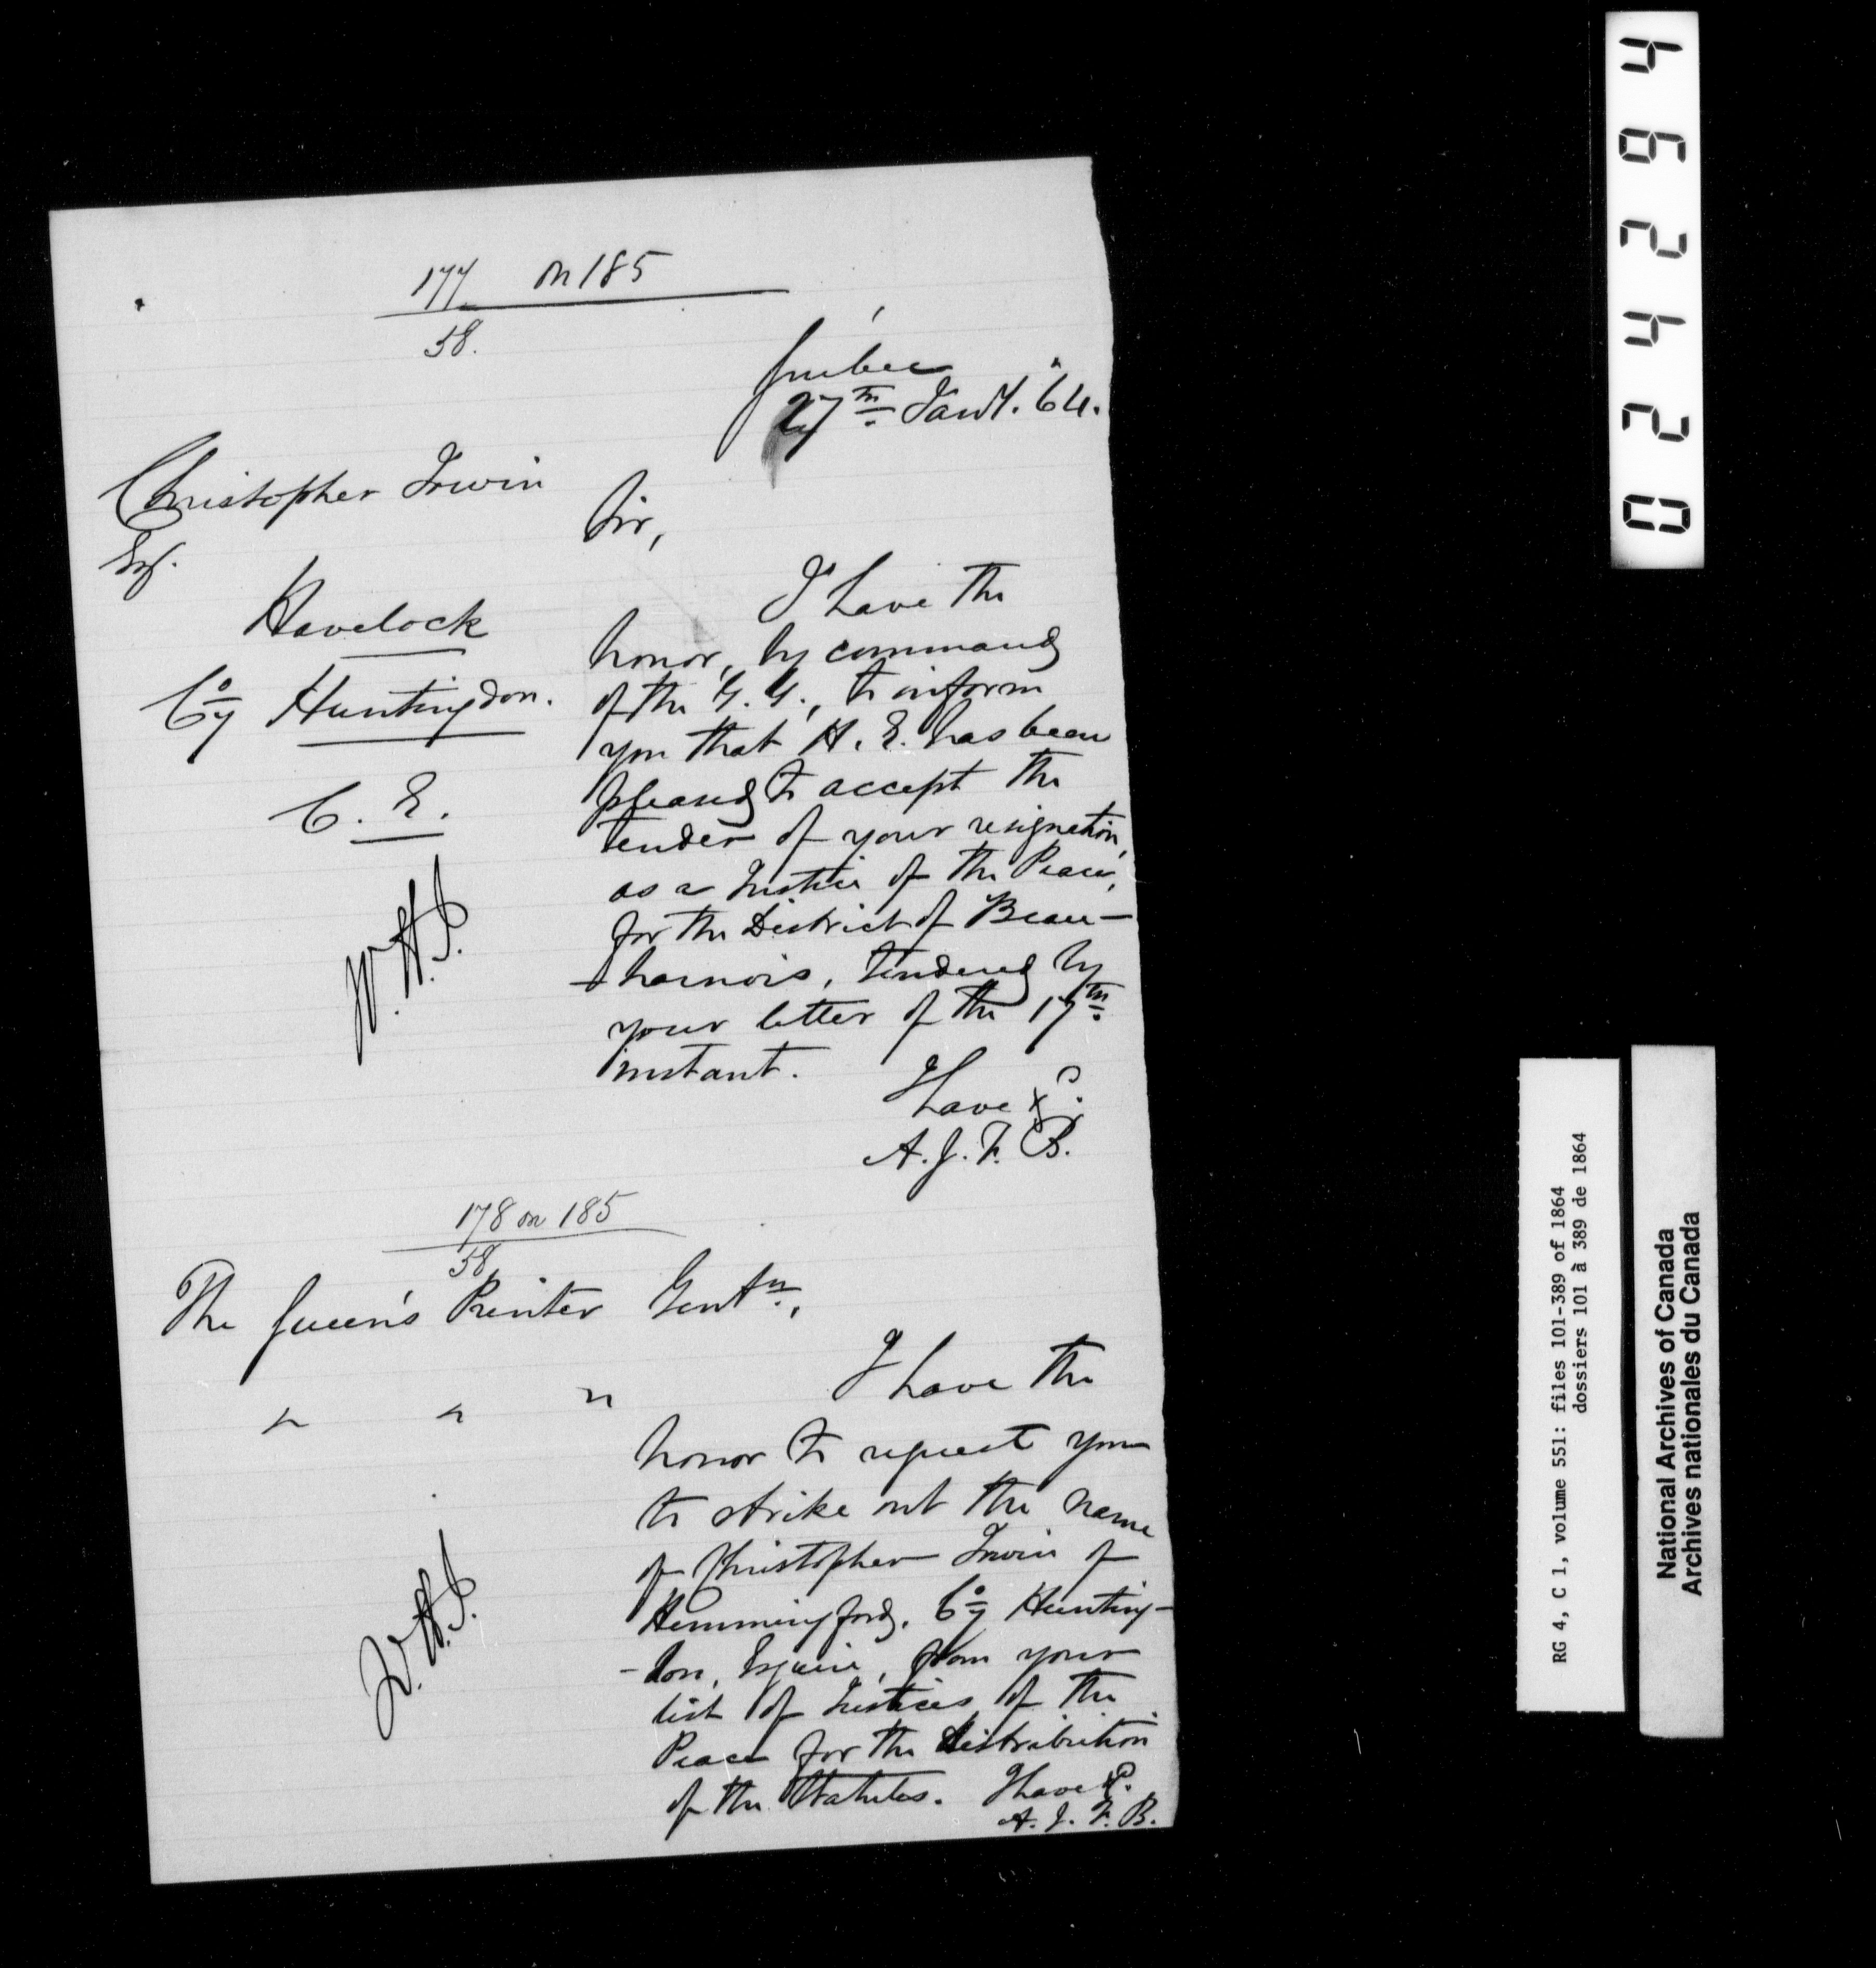 177 on 185
58.
Quebec
27th Jany. '64.
Christopher Irwin
Esq.
Havelock
Coy Huntingdon.
C. E.
W. H. J.
Sir,
I have the
honor, by command
of the G. G., to inform
you that H. E. has been
pleased to accept the
tender of your resignation,
as a Justice of the Peace,
for the District of Beau-
-harnois, tendered by
your letter of the 17th
instant.
I have &c.
A. J. F. B.
178 on 185
58
The Queen's Printer
" " "
W. H. J.
Gentn.,
I have the
honor to request you
to strike out the name
of Christopher Irwin of
Hemmingford, Coy Hunting-
-don, Esquire, from your
list of Justices of the
Peace for the distribution
of the Statutes. I have &c.
A. J. F. B.
024294
RG 4, C 1, volume 551: files 101-389 of 1864
dossiers 101 à 389 de 1864
National Archives of Canada
Archives nationales du Canada